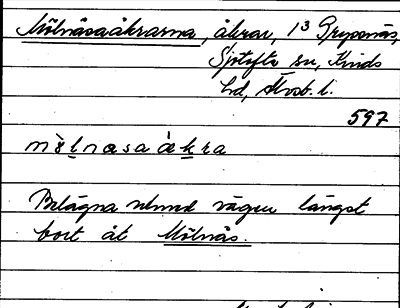 Mölnäsaåkrarna, åkrar, 1³ Grypenäs,
Sjötofta sn, Kinds
hd, Älvsb. l.
597
Belägna utmed vägen längst
bort åt Mölnäs.